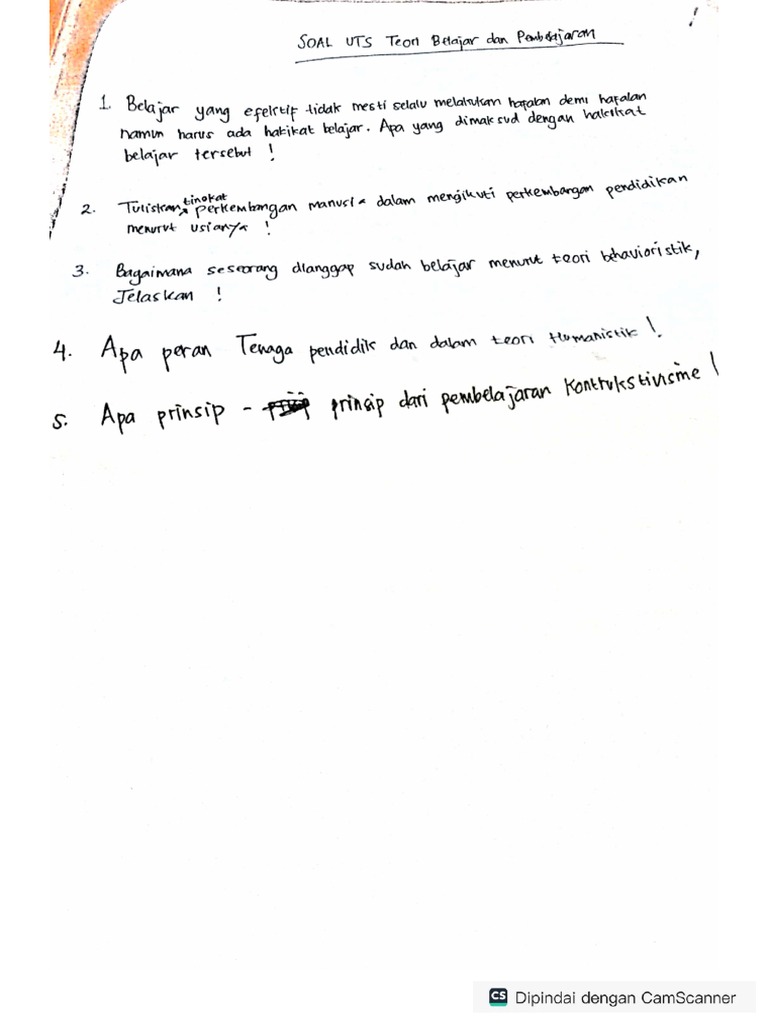 !
SOAL UTS Teori Belajar dan Pembelajaran
1. Belajar yang efektif tidak mesti selalu melakukan hafalan demi hafalan
namun harus ada hakikat belajar. Apa yang dimaksud dengan hakikat
belajar tersebut !
tingkat
2. Tuliskan perkembangan manusia dalam mengikuti perkembangan pendidikan
menurut usianya !
3. Bagaimana seseorang dianggap sudah belajar menurut teori behavioristik,
Jelaskan !
4. Apa peran Tenaga pendidik dan dalam teori Humanistik !
5. Apa prinsip - prinsip dari pembelajaran Kontrukstivisme !
CS Dipindai dengan CamScanner